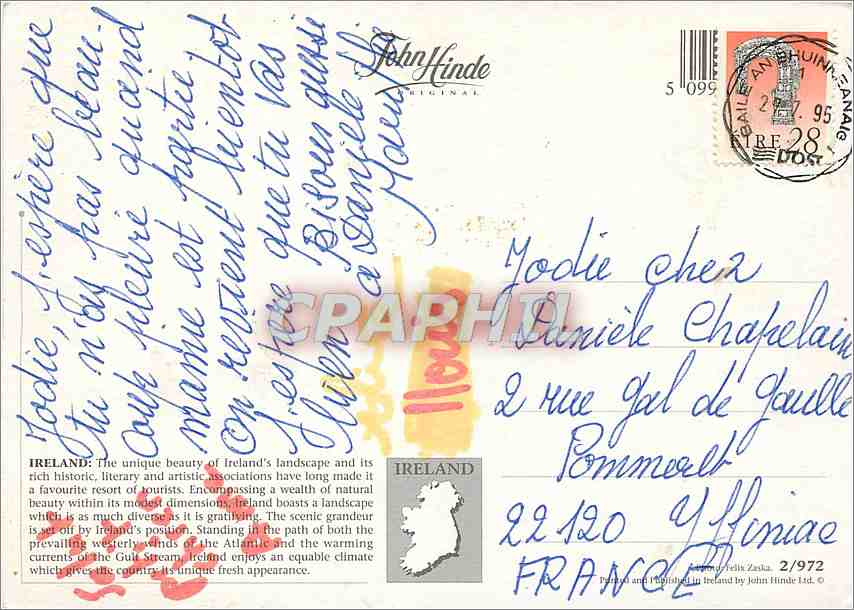 Jodie, J'espère que
tu n'as pas beau-
coup pleuré quand
mamie est partie.
On revient bientôt
J'espère que tu vas
bien. Bisous aussi
à Danièle
John Hinde
ORIGINAL
5 099
BAILE AN BHUINNEANAIGH
95
ÉIRE 28
Jodie chez
Danièle Chapelain
2 rue Gal de Gaulle
Pommeret
22120 Yffiniac
FRANCE
CPAPHIL
IRELAND: The unique beauty of Ireland's landscape and its
rich historic, literary and artistic associations have long made it
a favourite resort of tourists. Encompassing a wealth of natural
beauty within its modest dimensions, Ireland boasts a landscape
which is as much diverse as it is gratifying. The scenic grandeur
is set off by Ireland's position. Standing in the path of both the
prevailing westerly winds of the Atlantic and the warming
currents of the Gulf Stream, Ireland enjoys an equable climate
which gives the country its unique fresh appearance.
IRELAND
Photo: Felix Zaska. 2/972
Printed and Published in Ireland by John Hinde Ltd. ©